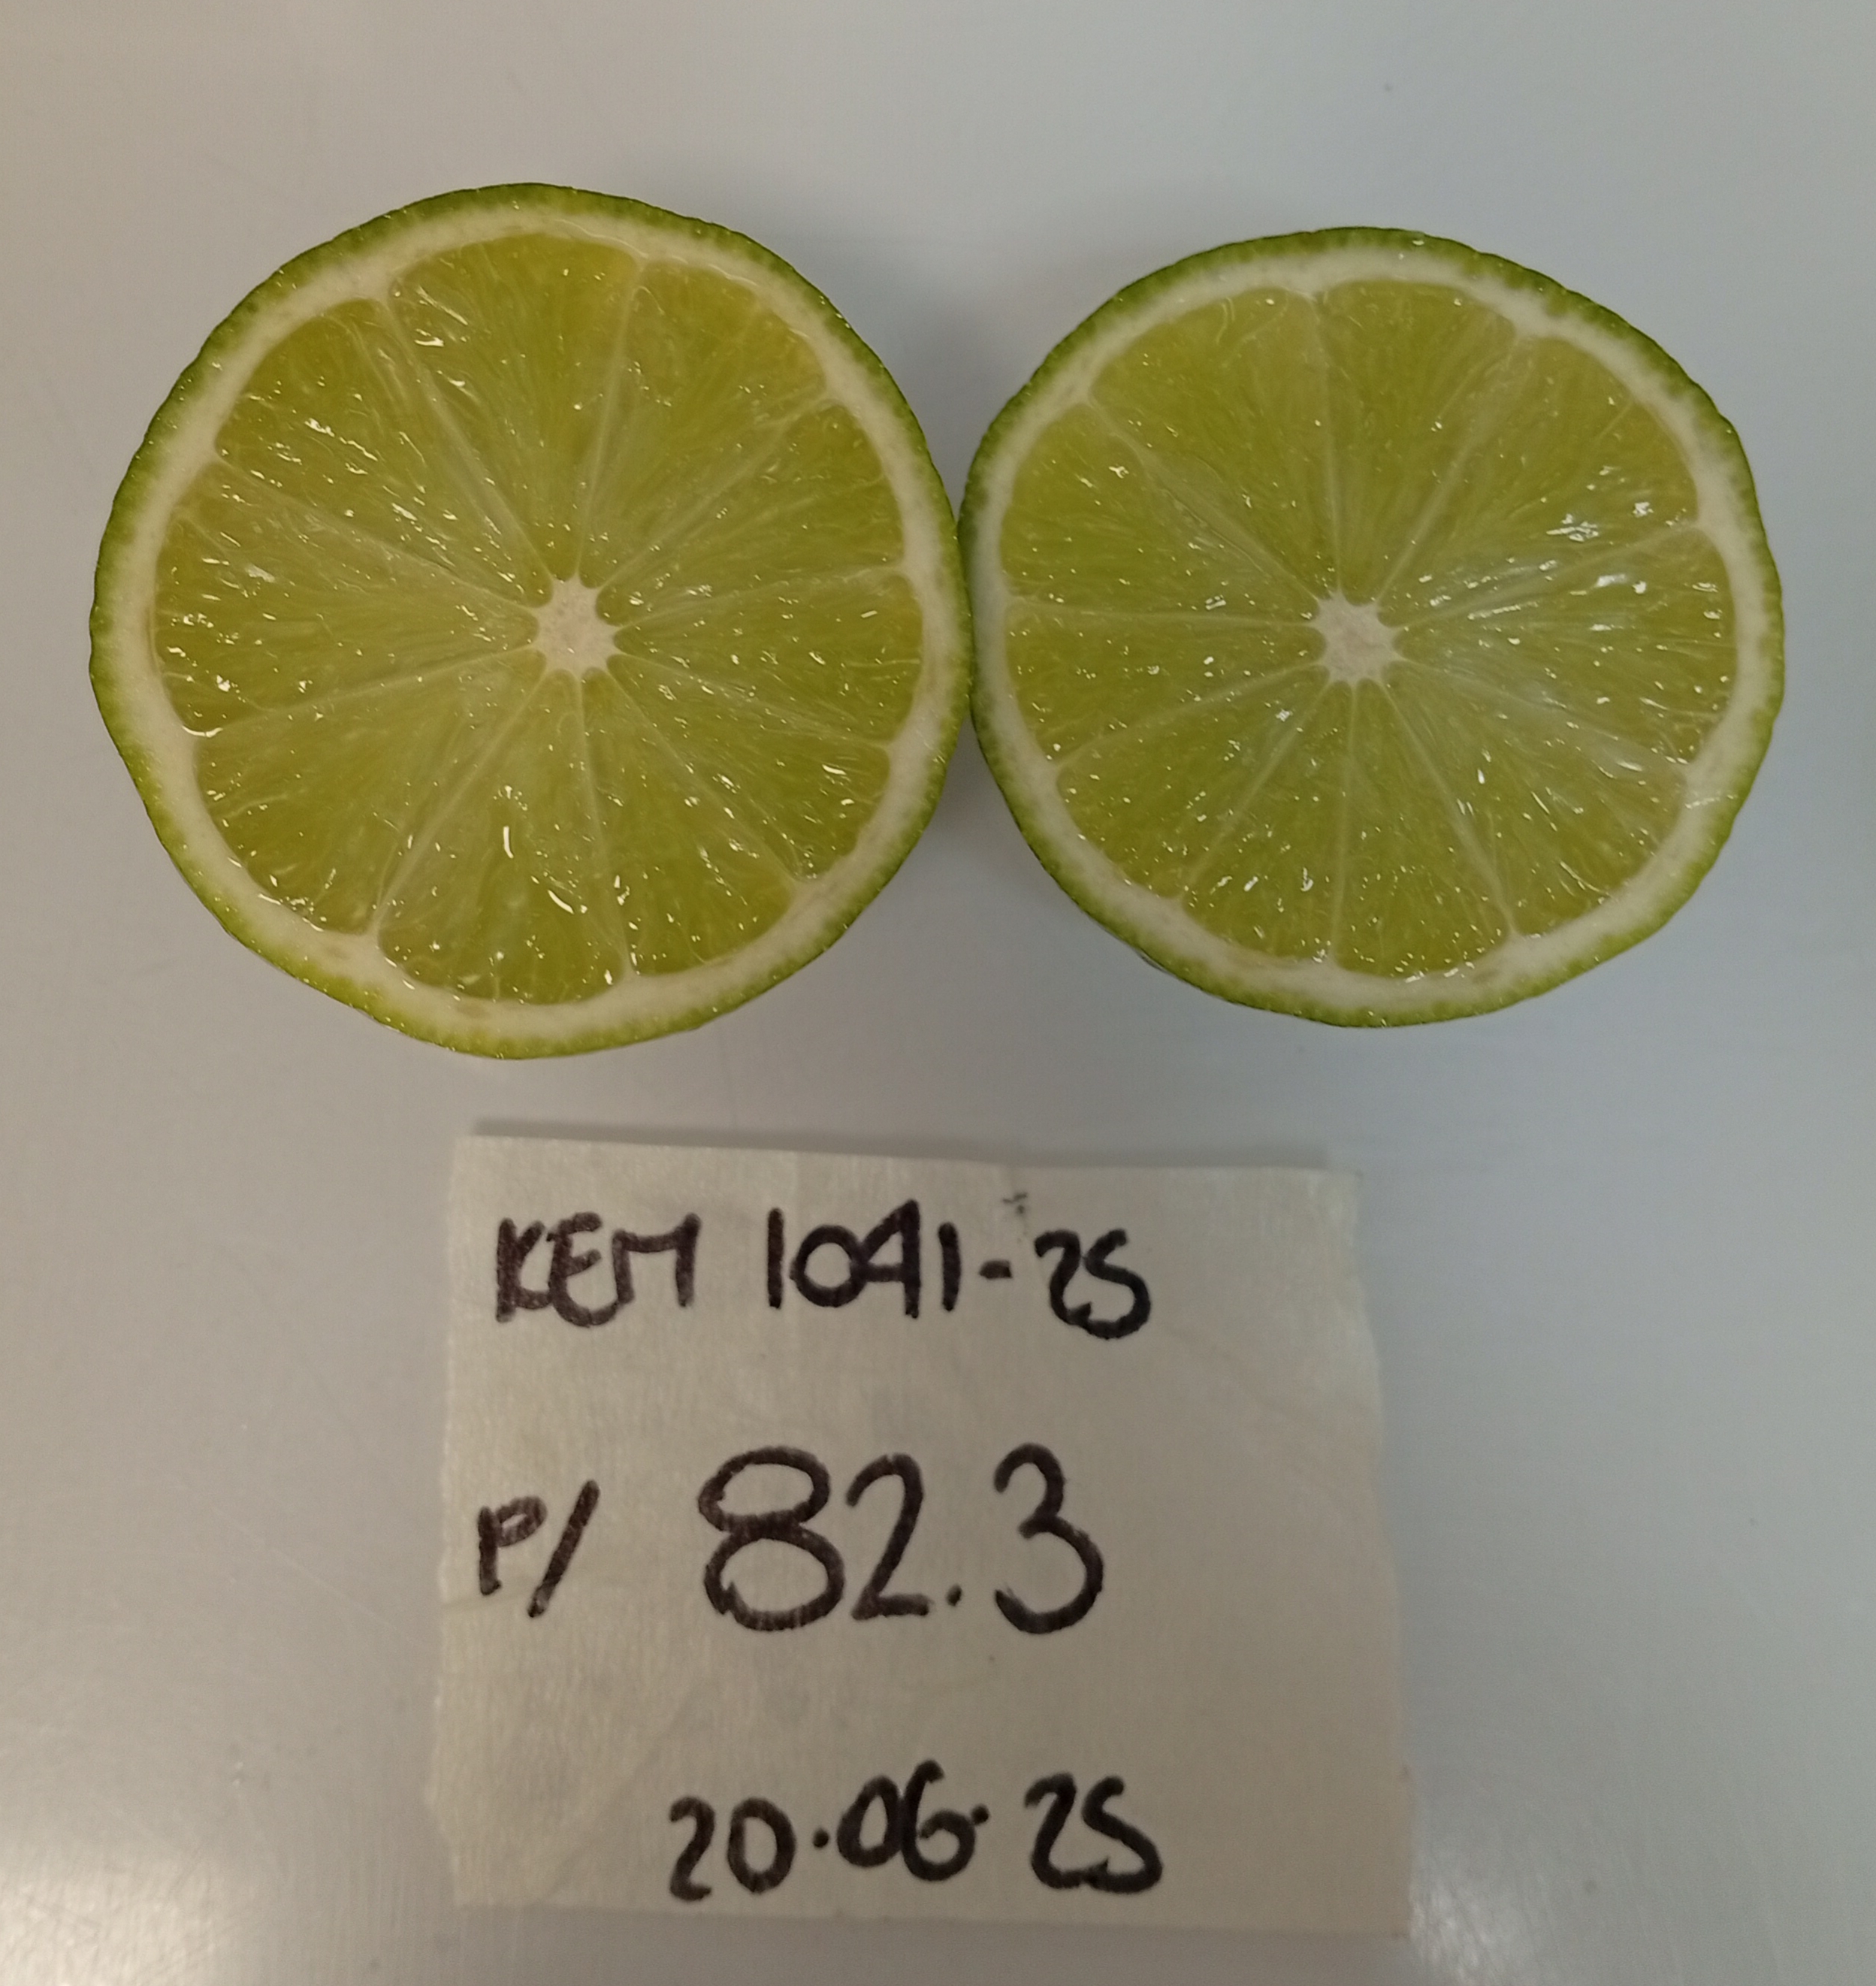 KEM 1041-25
P/ 82.3
20.06.25